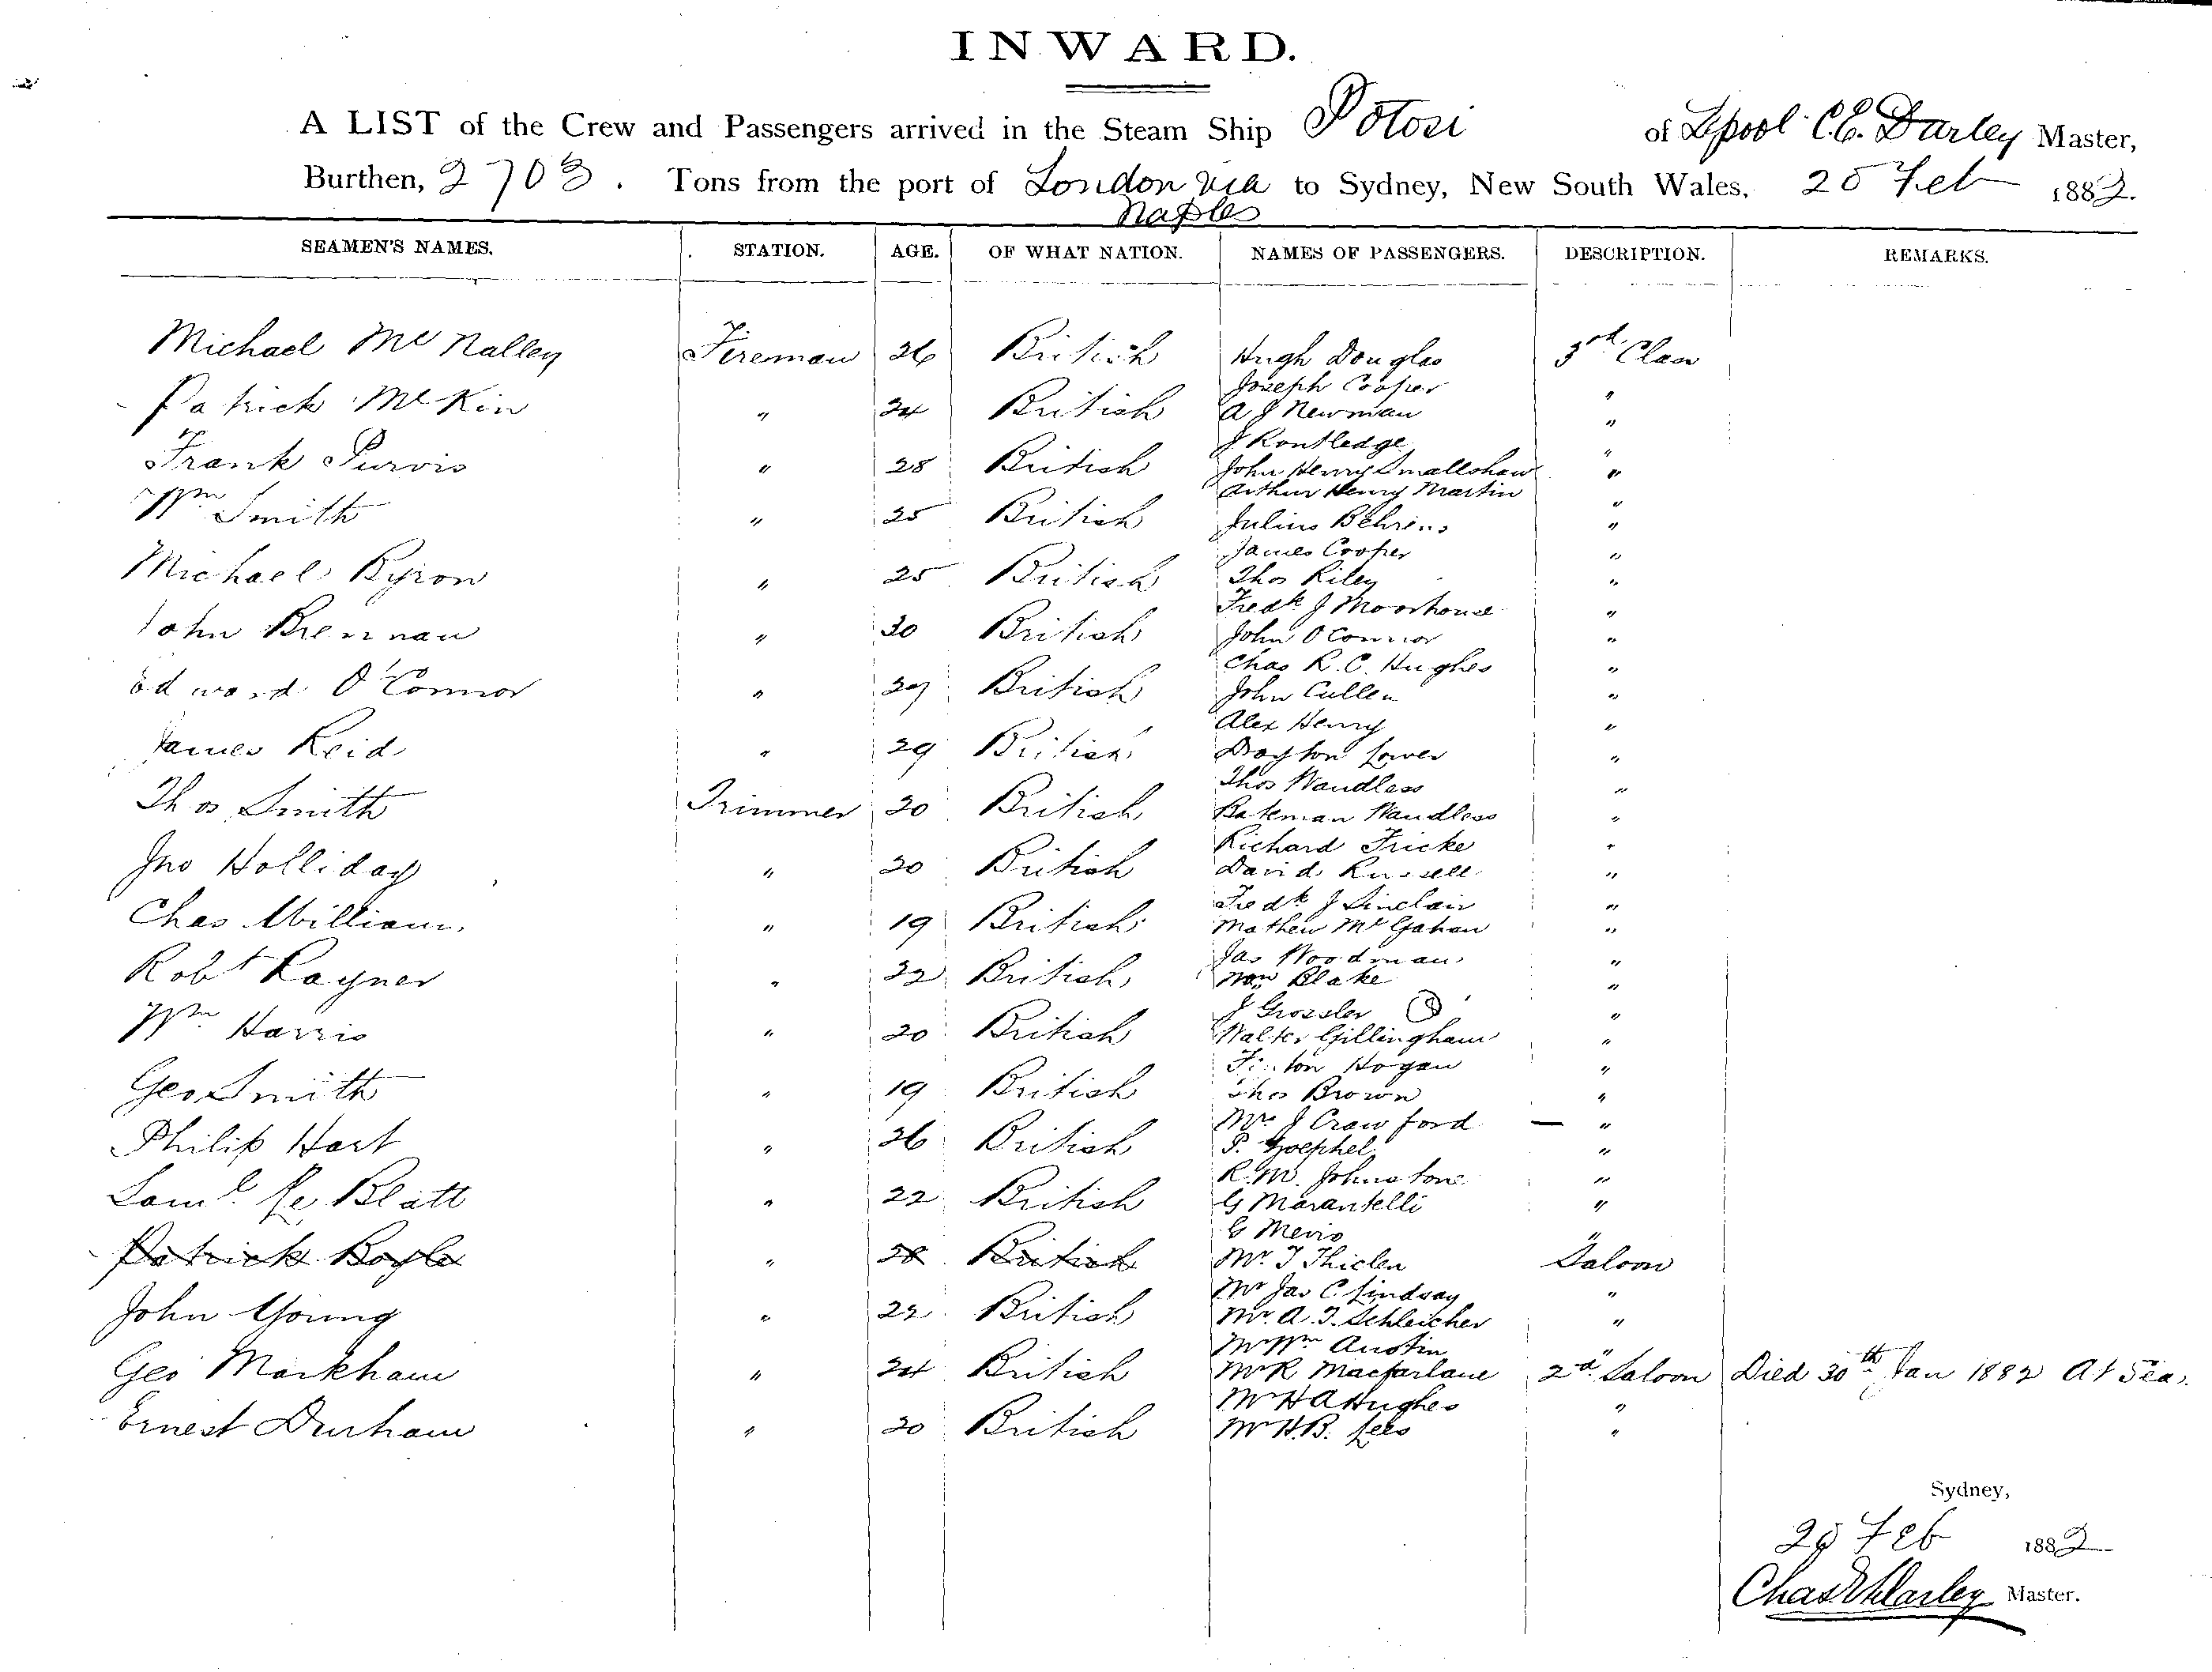 INWARD.
A LIST of the Crew and Passengers arrived in the Steam Ship Potosi of Lpool C.E. Darley Master,
Burthen, 2703. Tons from the port of London via Naples to Sydney, New South Wales, 25 Feb 1882.
SEAMEN'S NAMES. STATION. AGE. OF WHAT NATION. NAMES OF PASSENGERS. DESCRIPTION. REMARKS.
Michael Mc Nalley Fireman 26 British Hugh Douglas 3rd Class
Joseph Cooper "
Patrick Mc Kin " 24 British A J Newman "
J Routledge "
Frank Purvis " 28 British John Henry Smallshaw "
Arthur Henry Martin "
Wm Smith " 25 British Julius Behrens "
James Cooper "
Michael Byron " 25 British Thos Riley "
Fredk J Moorhouse "
John Brennan " 30 British John O Connor "
Chas R. C. Hughes "
Edward O'Connor " 29 British John Cullen "
Alex Henry "
James Reid " 29 British Lower "
Thos Wandless "
Thos Smith Trimmer 20 British Bateman Wandless "
Richard Fricke "
Jno Holliday " 20 British David Russell "
Fredk J Sinclair "
Chas William. " 19 British Mathew Mc Gahan "
Jas Woodman "
Robt Rayner " 22 British Blake "
J Grossler (3) "
Wm Harris " 20 British Walter Gillingham "
Hogan "
Geo Smith " 19 British Thos Brown "
Mrs J Crawford — "
Philip Hart " 26 British P. "
R. M. Johnstone "
Saml Le Blatt " 22 British G Marantelli "
G Mevis "
Patrick Boyle " 28 British Mr. T Thiclen Saloon
Mr Jas C. Lindsay "
John Young " 22 British Mr. A. T. Schleicher "
Mr Wm Austin "
Geo Markham " 24 British Mr R Macfarlane 2d Saloon Died 30th Jan 1882 At Sea.
Mr H A Hughes "
Ernest Durham " 20 British Mr H.B. Lees "
Sydney,
25 Feb 1882
Chas E Darley Master.